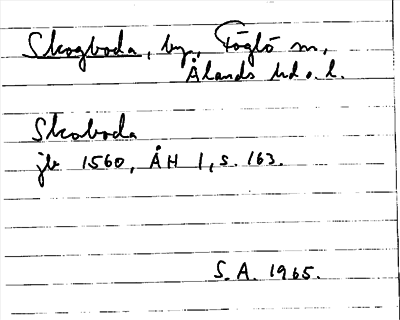 Skogboda, by, Föglö sn,
Ålands hd o. l.
Skoboda
jb 1560, ÅH 1, s. 163.
S.A. 1965.